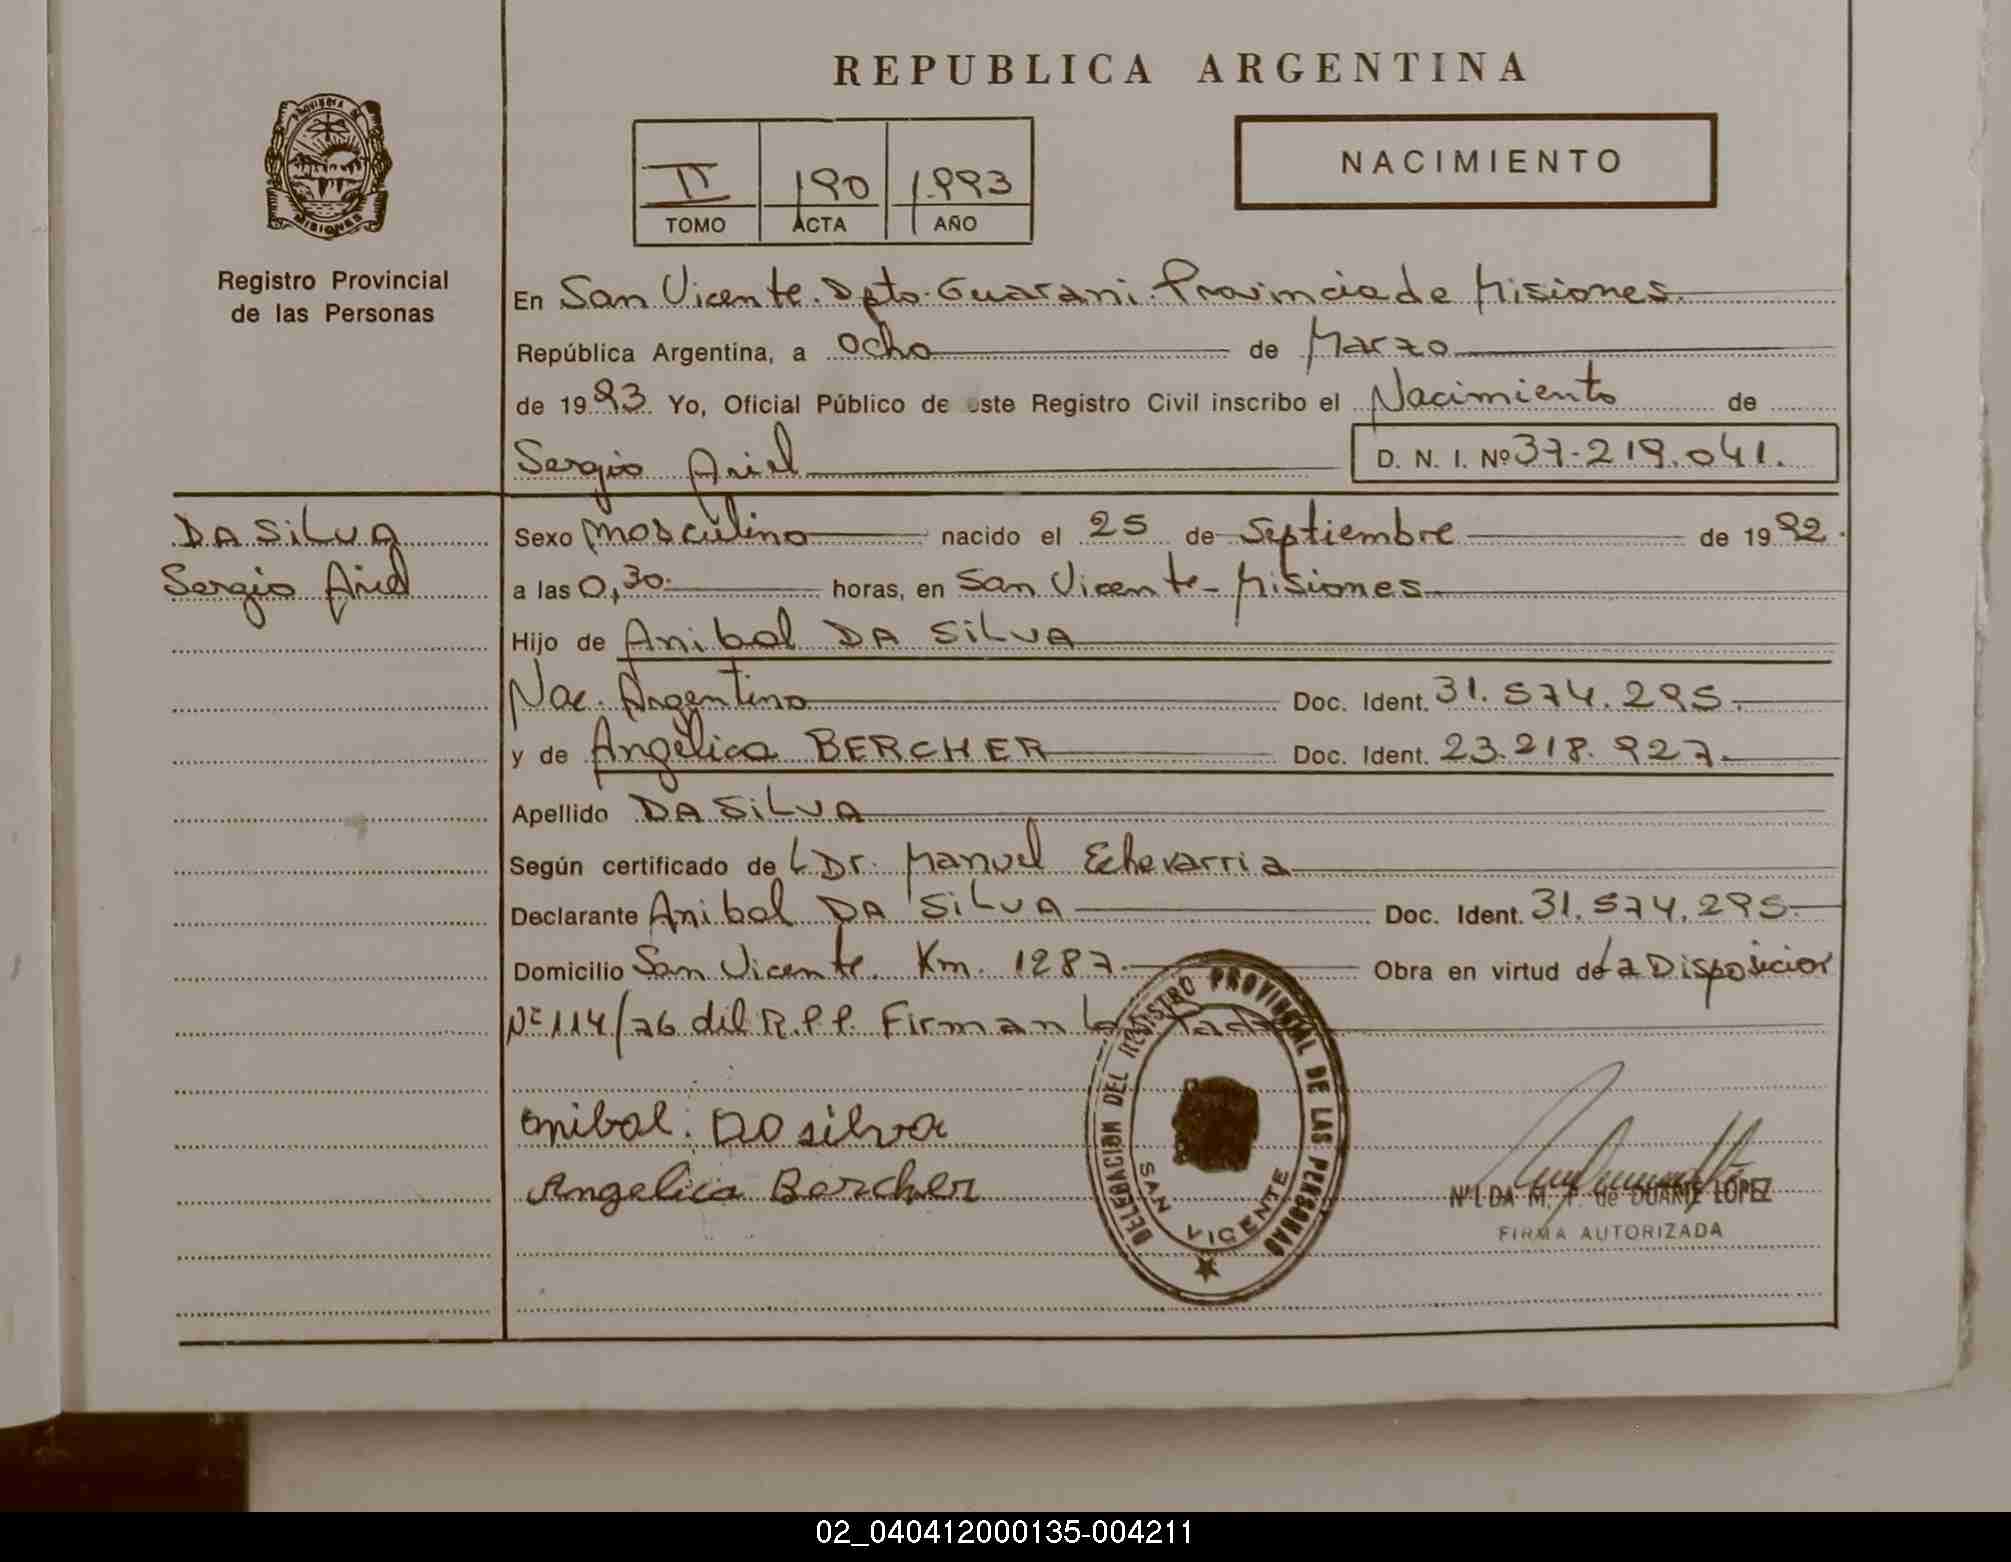 REPUBLICA ARGENTINA
PROVINCIA DE MISIONES
Registro Provincial
de las Personas
II 190 1.993
TOMO ACTA AÑO
NACIMIENTO
En San Vicente. Dpto. Guarani. Provincia de Misiones.
República Argentina, a ocho de Marzo
de 1993. Yo, Oficial Público de este Registro Civil inscribo el Nacimiento de
Sergio Ariel D. N. I. Nº 37.219.041.
DA SILVA
Sergio Ariel
Sexo masculino nacido el 25 de Septiembre de 1992.
a las 0,30. horas, en San Vicente - Misiones
Hijo de Anibal DA SILVA
Nac. Argentino Doc. Ident. 31.574.295.
y de Angélica BERCHER Doc. Ident. 23.218.927.
Apellido DA SILVA
Según certificado de L Dr. Manuel Echevarria
Declarante Anibal DA SILVA Doc. Ident. 31.574.295.
Domicilio San Vicente. Km. 1287. Obra en virtud de La Disposicion
Nº 114/76 del R.P.P. Firman
anibal. Da silva
Angelica Bercher
DELEGACION DEL REGISTRO PROVINCIAL DE LAS PERSONAS
SAN VICENTE
NILDA M. F. de DUARTE LÓPEZ
FIRMA AUTORIZADA
02_040412000135-004211